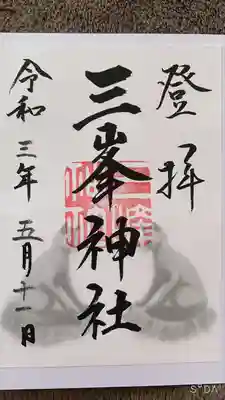 登拝
三峯神社
令和三年五月十一日
SODA